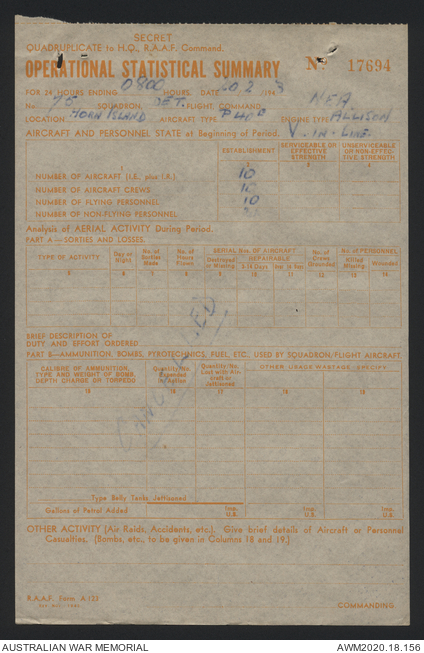 SECRET
QUADRUPLICATE to H.Q., R.A.A.F. Command.
OPERATIONAL STATISTICAL SUMMARY No 17694
FOR 24 HOURS ENDING 0800 HOURS. DATE 2 /194 3
No. 75 SQUADRON, DET. FLIGHT. COMMAND N.E.A.
LOCATION HORN ISLAND AIRCRAFT TYPE P40 ENGINE TYPE ALLISON
AIRCRAFT AND PERSONNEL STATE at Beginning of Period. V. IN-LINE.
ESTABLISHMENT SERVICEABLE OR EFFECTIVE STRENGTH UNSERVICEABLE OR NON-EFFECTIVE STRENGTH
NUMBER OF AIRCRAFT (I.E. plus I.R.) 10
NUMBER OF AIRCRAFT CREWS 10
NUMBER OF FLYING PERSONNEL 10
NUMBER OF NON-FLYING PERSONNEL
Analysis of AERIAL ACTIVITY During Period.
PART A—SORTIES AND LOSSES.
TYPE OF ACTIVITY Day or Night No. of Sorties Made No. of Hours Flown SERIAL Nos. OF AIRCRAFT Destroyed or Missing REPAIRABLE No. of Crews Grounded No. of PERSONNEL Killed Missing Wounded
5 6 7 8 9 10 11 12 13 14
CANCELLED
BRIEF DESCRIPTION OF
DUTY AND EFFORT ORDERED
PART B—AMMUNITION, BOMBS, PYROTECHNICS, FUEL, ETC., USED BY SQUADRON/FLIGHT AIRCRAFT.
CALIBRE OF AMMUNITION, TYPE AND WEIGHT OF BOMB, DEPTH CHARGE OR TORPEDO Quantity/No. Expended in Action Quantity/No. Lost with Aircraft or Jettisoned OTHER USAGE WASTAGE—SPECIFY
15 16 17 18 19
Type Belly Tanks Jettisoned
Gallons of Petrol Added Imp. U.S. Imp. U.S. Imp. U.S.
OTHER ACTIVITY (Air Raids, Accidents, etc.). Give brief details of Aircraft or Personnel
Casualties. (Bombs, etc., to be given in Columns 18 and 19.)
R.A.A.F. Form A/123
COMMANDING
AUSTRALIAN WAR MEMORIAL AWM2020.18.156